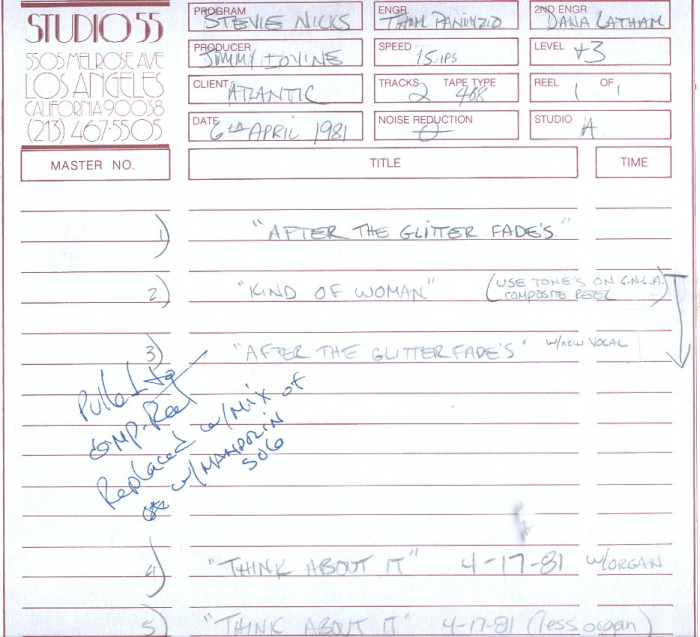 STUDIO 55
5505 MELROSE AVE
LOS ANGELES
CALIFORNIA 90038
(213) 467-5505
PROGRAM STEVIE NICKS
ENGR THOM PANUNZIO
2ND ENGR DANA LATHAM
PRODUCER JIMMY IOVINE
SPEED 15 IPS
LEVEL +3
CLIENT ATLANTIC
TRACKS 2 TAPE TYPE 468
REEL 1 OF 1
DATE 6TH APRIL 1981
NOISE REDUCTION 0
STUDIO A
MASTER NO.
TITLE
TIME
1) "AFTER THE GLITTER FADE'S"
2) "KIND OF WOMAN" (USE TONE'S ON G.N.L.A. COMPOSITE REEL)
3) "AFTER THE GLITTER FADE'S" W/new VOCAL
Pulled to
comp. Reel
Replaced w/Mix of
w/MANDOLIN
SOLO
4) "THINK ABOUT IT" 4-17-81 W/ORGAN
5) "THINK ABOUT IT" 4-17-81 (less organ)